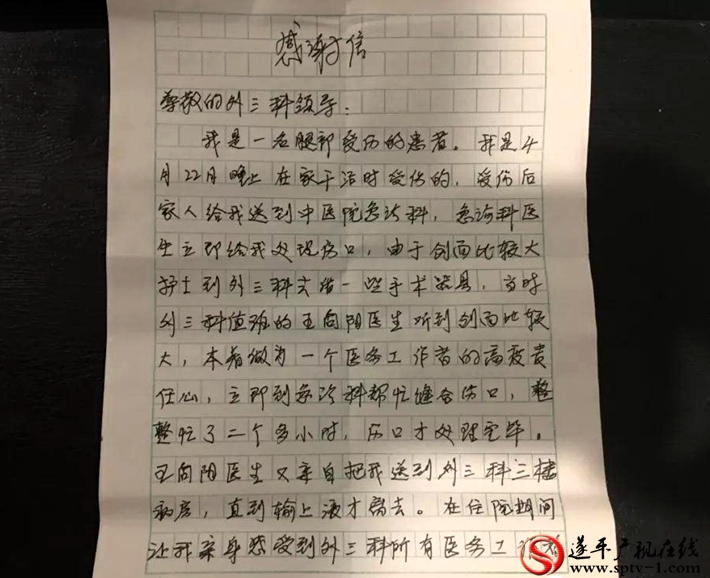 感谢信
尊敬的外三科领导:
我是一名腿部受伤的患者。我是4
月22月晚上在家干活时受伤的，受伤后
家人给我送到中医院急诊科，急诊科医
生立即给我处理伤口，由于创面比较大
护士到外三科去借一些手术器具，当时
外三科值班的王向阳医生听到创面比较
大，本着做为一个医务工作者的高度责
任心，立即到急诊科帮忙缝合伤口，整
整忙了二个多小时，伤口才处理完毕。
王向阳医生又亲自把我送到外三科三楼
病房，直到输上液才离去。在住院期间
让我亲身感受到外三科所有医务工作者
遂平广视在线
www.sptv-1.com